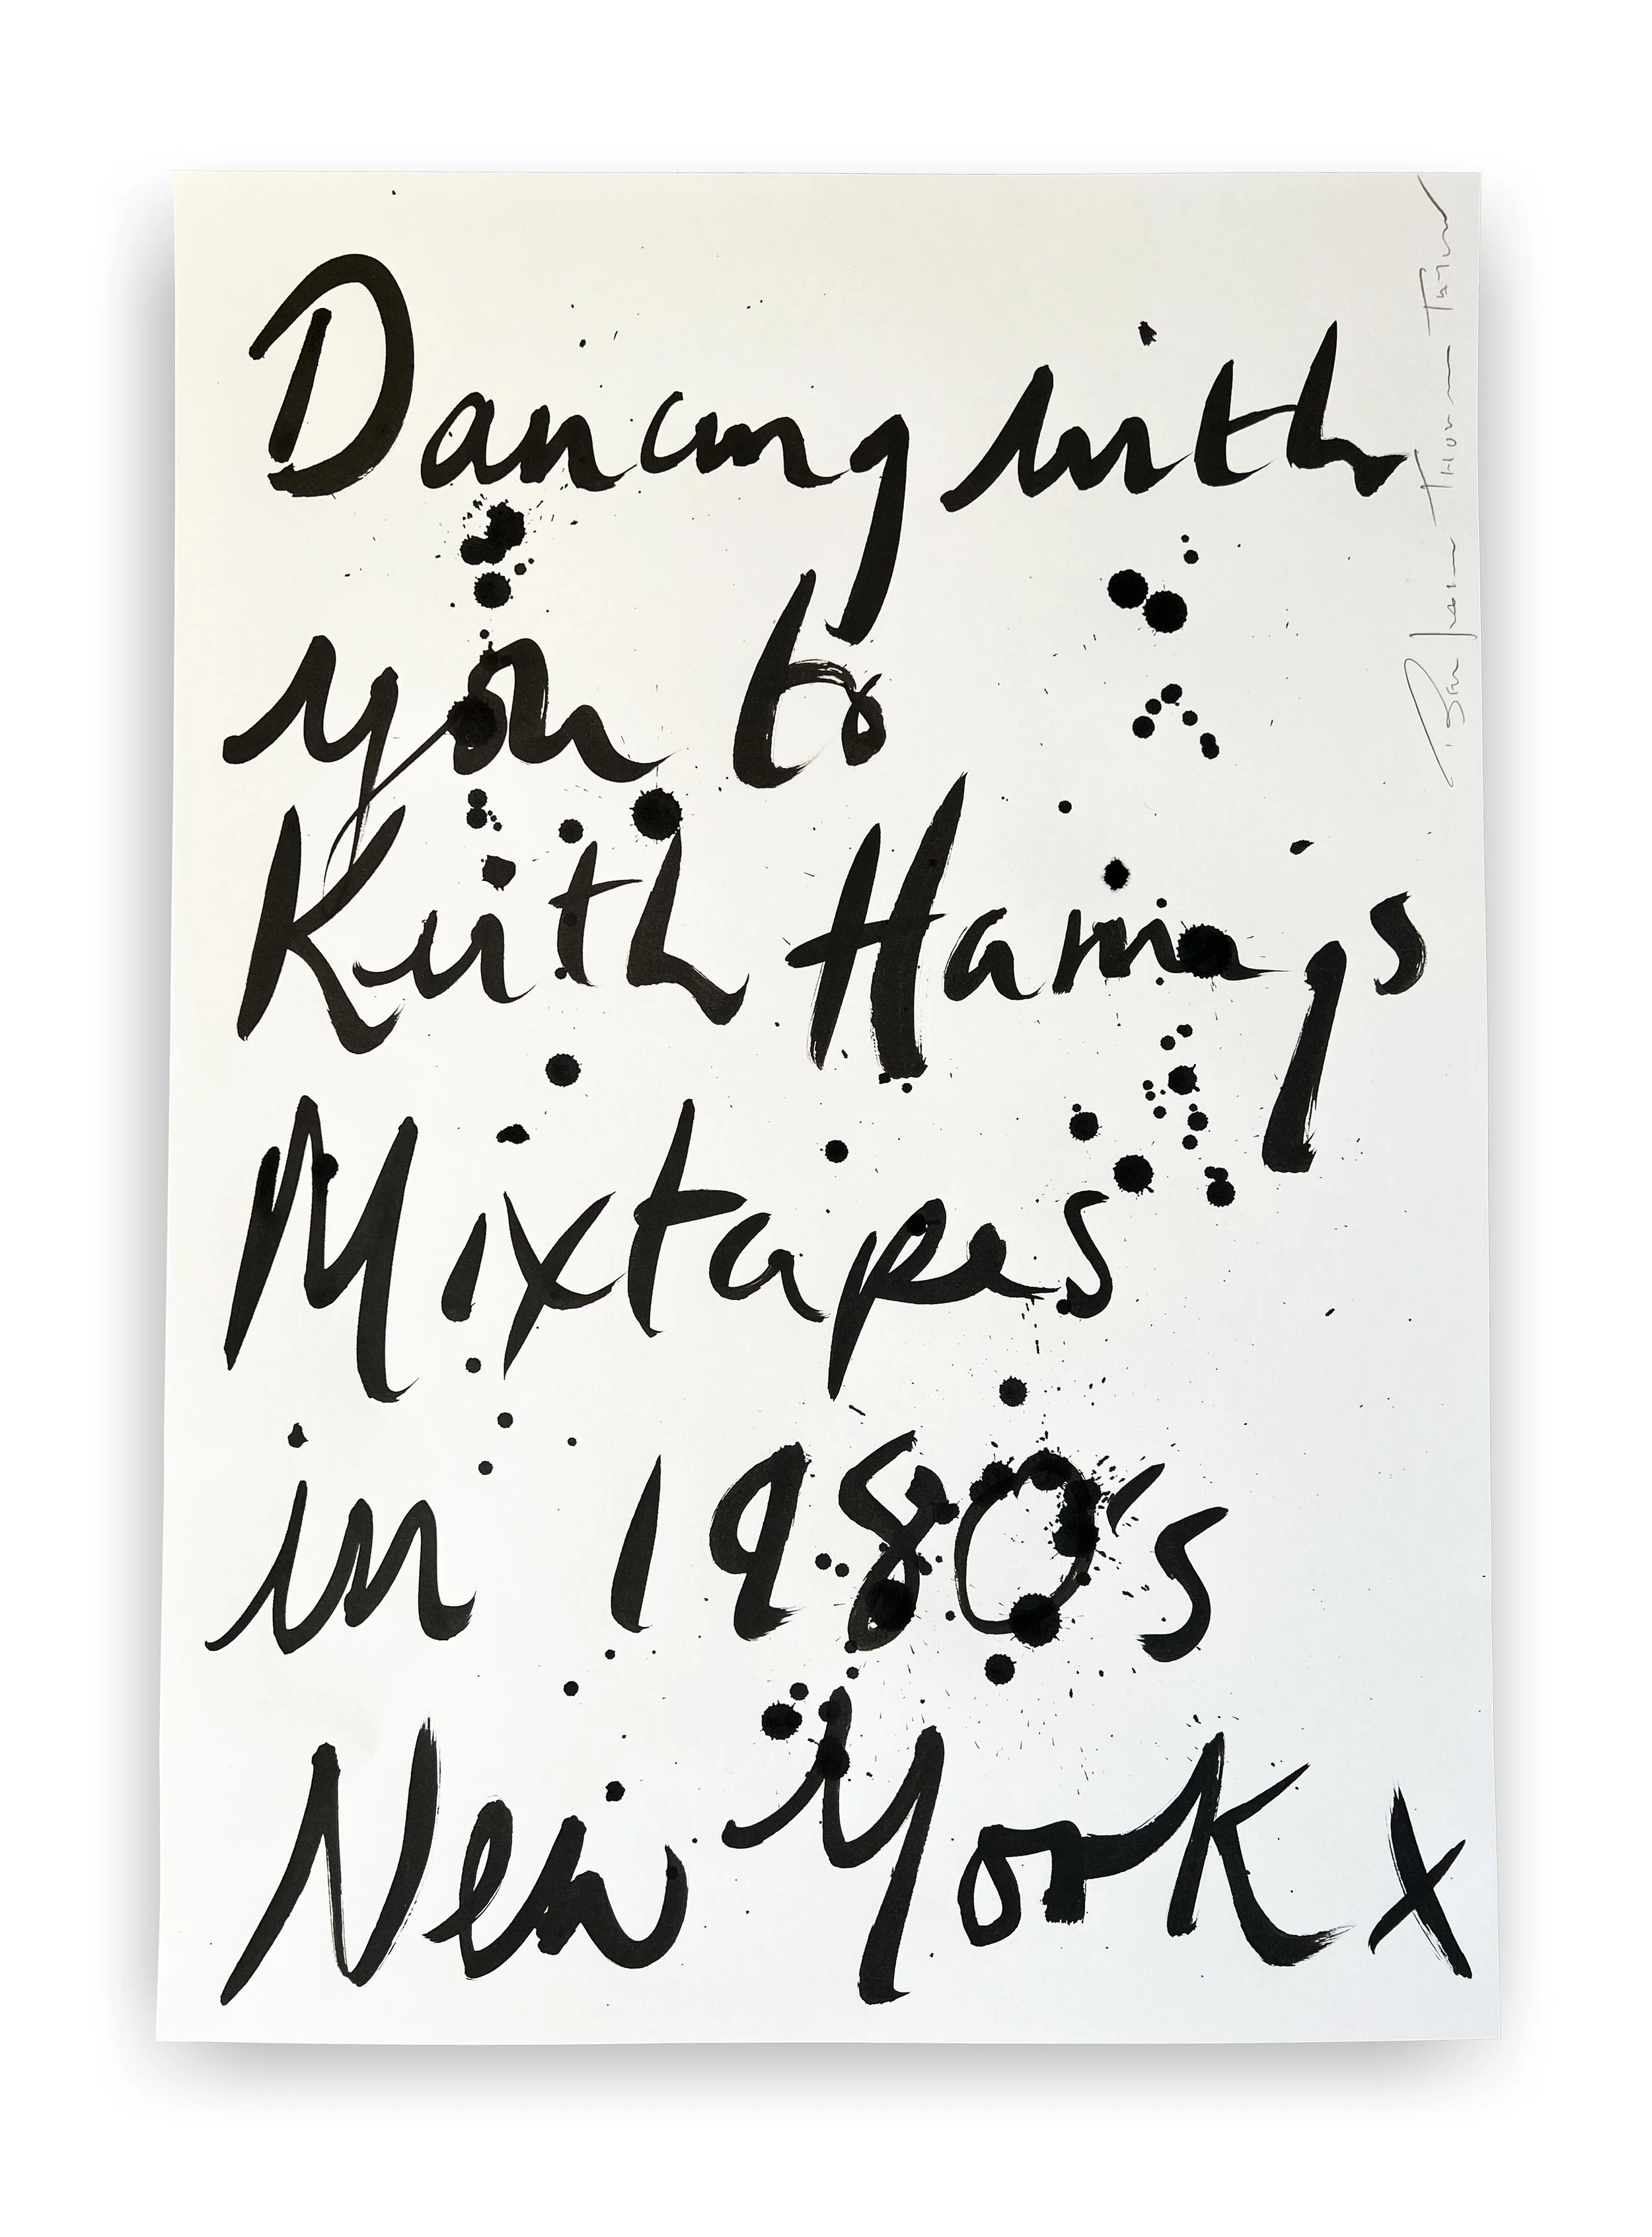 Dancing with
you to
Keith Harings
Mixtapes
in 1980's
New York x